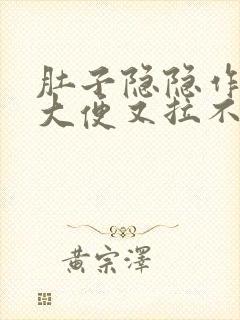 肚子隐隐作
大便又拉不
黄宗泽